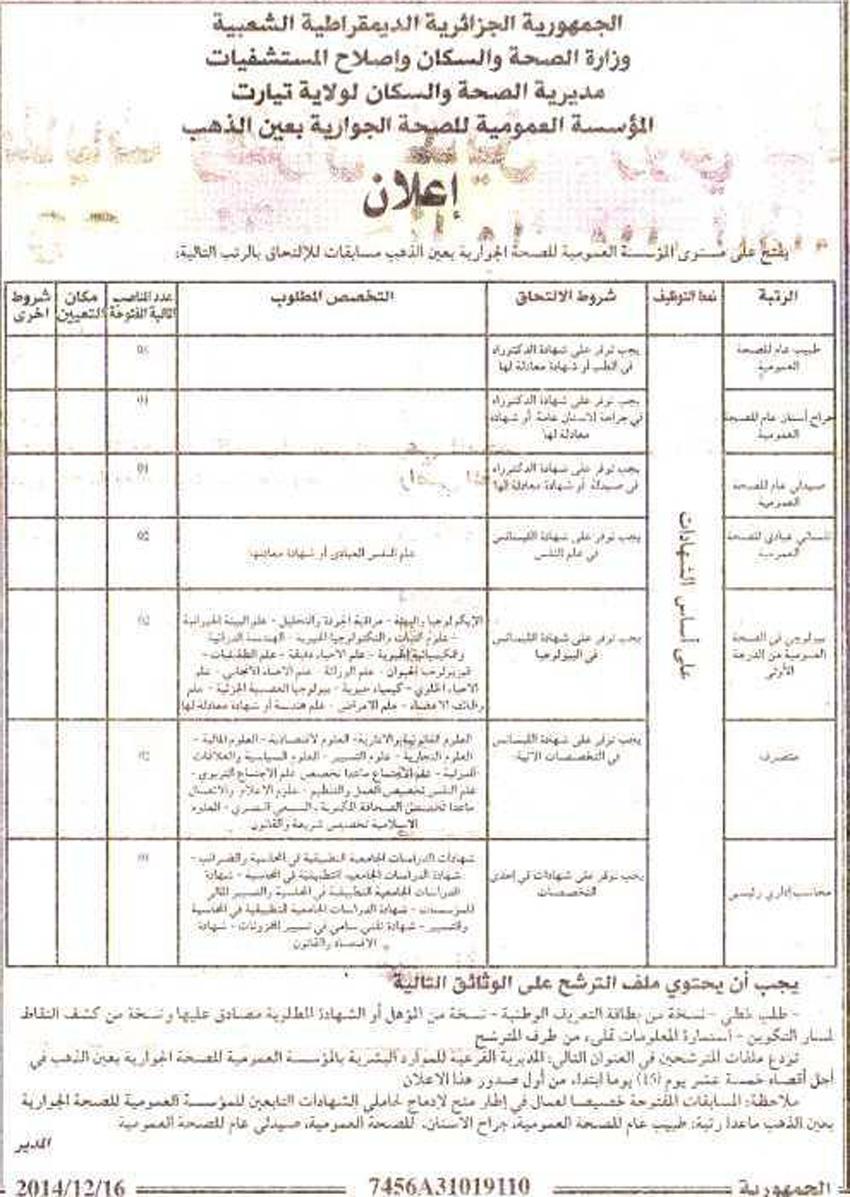 الجمهورية الجزائرية الديمقراطية الشعبية
وزارة الصحة والسكان وإصلاح المستشفيات
مديرية الصحة والسكان لولاية تيارت
المؤسسة العمومية للصحة الجوارية بعين الذهب
إعلان
يفتح على مستوى المؤسسة العمومية للصحة الجوارية بعين الذهب مسابقات للالتحاق بالرتب التالية:
الرتبة
نمط التوظيف
شروط الالتحاق
التخصص المطلوب
عدد المناصب
المالية المفتوحة
مكان
التعيين
شروط
اخرى
على أساس الشهادات
طبيب عام للصحة
العمومية
يجب توفر على شهادة الدكتوراه
في الطب أو شهادة معادلة لها
جراح أسنان عام للصحة
العمومية
يجب توفر على شهادة الدكتوراه
في جراحة الاسنان عامة أو شهادة
معادلة لها
صيدلي عام للصحة
العمومية
يجب توفر على شهادة الدكتوراه
في صيدلة أو شهادة معادلة لها
نفساني عيادي للصحة
العمومية
يجب توفر على شهادة الليسانس
في علم النفس
علم النفس العيادي أو شهادة معادلة لها
بيولوجي في الصحة
العمومية من الدرجة
الأولى
يجب توفر على شهادة الليسانس
في البيولوجيا
الإيكولوجيا والبيئة - مراقبة الجودة والتحليل - علم البيئة الحيوانية
- علوم النبات والتكنولوجيا الحيوية - الهندسة الوراثية
والميكروبيولوجيا - علم الاحياء دقيقة - علم الطفيليات -
فيزيولوجيا الحيوان - علم الوراثة - علم الاحياء - علم
الاحياء الخلوي - كيمياء حيوية - بيولوجيا العصبية الجزئية - علم
وظائف الاعضاء - علم الامراض - علم هندسة أو شهادة معادلة لها
متصرف
يجب توفر على شهادة الليسانس
في التخصصات الآتية:
العلوم القانونية والادارية - العلوم الاقتصادية - العلوم المالية -
العلوم التجارية - علوم التسيير - العلوم السياسية والعلاقات
الدولية - علم الاجتماع ماعدا تخصص علم الاجتماع التربوي -
علم النفس تخصص العمل والتنظيم - علوم الاعلام والاتصال
ماعدا تخصص الصحافة المكتوبة والسمعي البصري - العلوم
الاسلامية تخصص شريعة والقانون
محاسب إداري رئيسي
يجب توفر على شهادات في إحدى
التخصصات
شهادات الدراسات الجامعية التطبيقية في المحاسبة والضرائب -
شهادة الدراسات الجامعية التطبيقية في المحاسبة - شهادة
الدراسات الجامعية التطبيقية في المحاسبة والتسيير المالي
للمؤسسات - شهادة الدراسات الجامعية التطبيقية في المحاسبة
والتسيير - شهادة تقني سامي في تسيير المخزونات - شهادة
الاقتصاد والقانون
يجب أن يحتوي ملف الترشح على الوثائق التالية
- طلب خطي - نسخة من بطاقة التعريف الوطنية - نسخة من المؤهل أو الشهادة المطلوبة مصادق عليها ونسخة من كشف النقاط
لمسار التكوين - استمارة المعلومات تملىء من طرف المترشح
تودع ملفات المترشحين في العنوان التالي: المديرية الفرعية للموارد البشرية بالمؤسسة العمومية للصحة الجوارية بعين الذهب في
أجل أقصاه خمسة عشر يوم (15) يوما ابتداء من أول صدور هذا الاعلان
ملاحظة: المسابقات المفتوحة خصيصا لعمال في إطار منح لادماج لحاملي الشهادات التابعين للمؤسسة العمومية للصحة الجوارية
بعين الذهب ماعدا رتبة: طبيب عام للصحة العمومية، جراح الاسنان، للصحة العمومية، صيدلي عام للصحة العمومية
المدير
الجمهورية 7456A31019110 2014/12/16